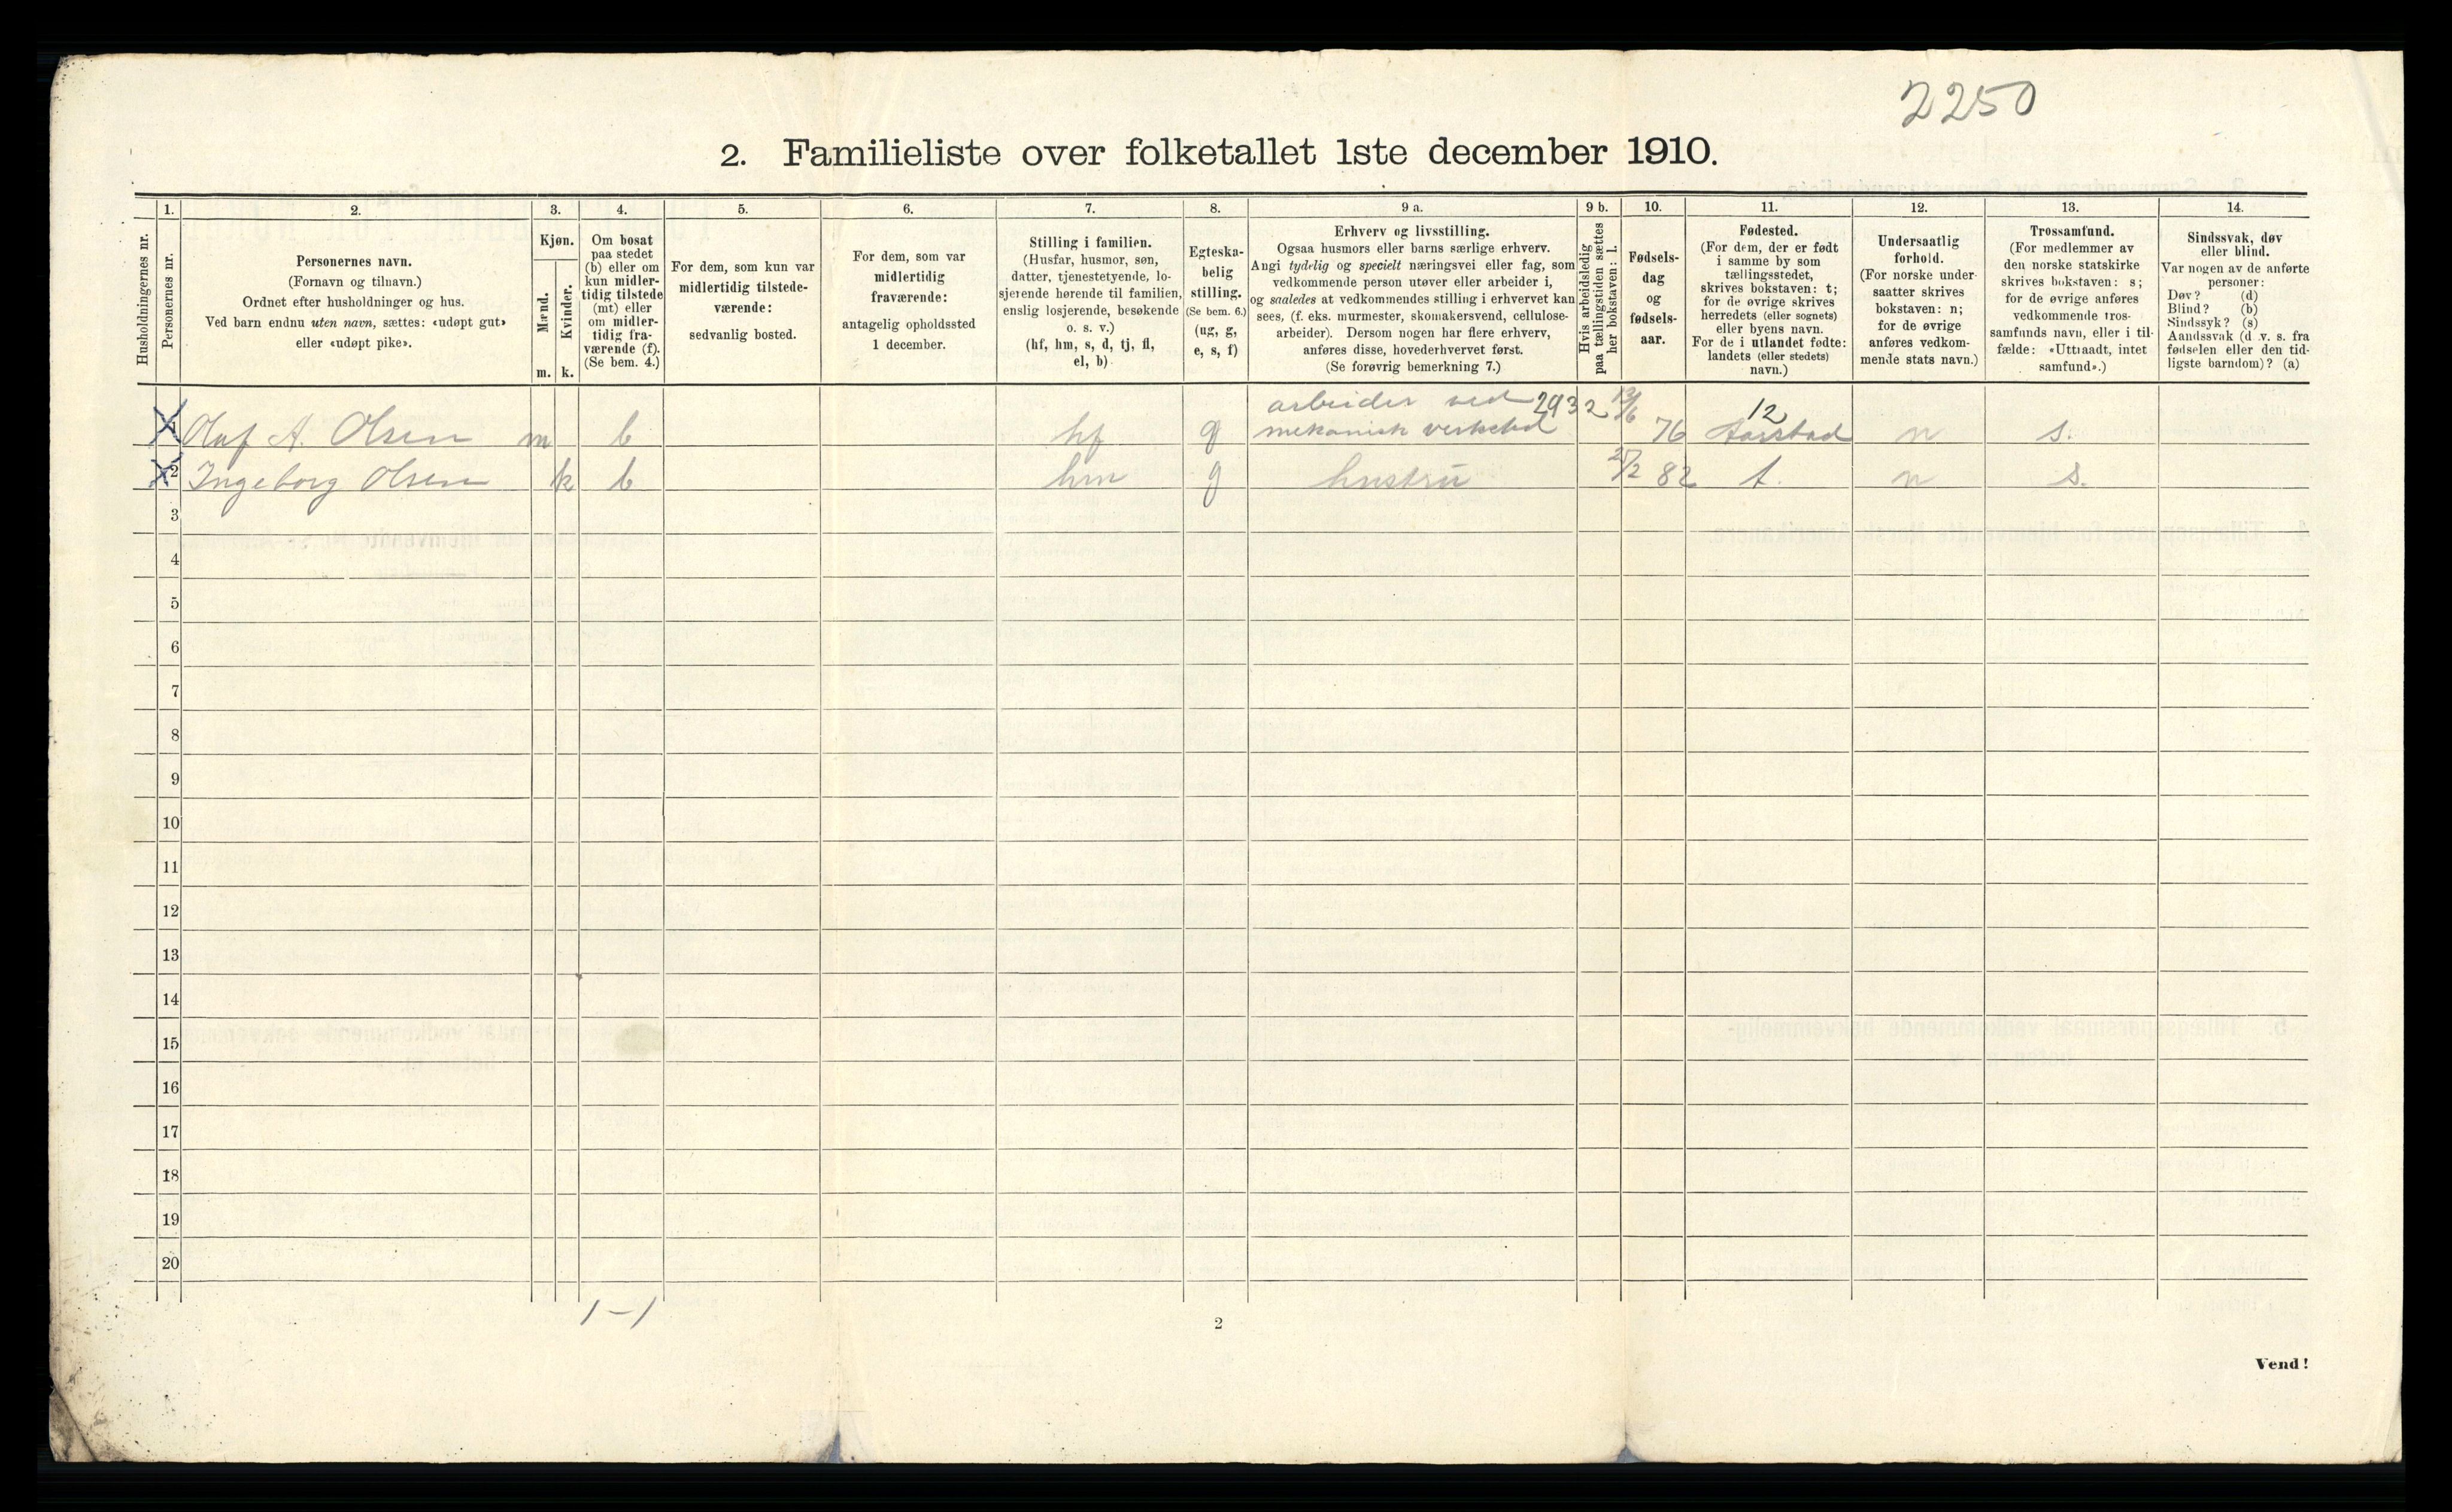 2250
2. Familieliste over folketallet 1ste december 1910.
Husholdningernes nr.
1.
Personernes nr.
2.
Personernes navn.
(Fornavn og tilnavn.)
Ordnet efter husholdninger og hus.
Ved barn endnu uten navn, sættes: «udøpt gut»
eller «udøpt pike».
3.
Kjøn.
Mænd.
Kvinder.
m. k.
4.
Om bosat
paa stedet
(b) eller om
kun midler-
tidig tilstede
(mt) eller
om midler-
tidig fra-
værende (f).
(Se bem. 4.)
5.
For dem, som kun var
midlertidig tilstede-
værende:
sedvanlig bosted.
6.
For dem, som var
midlertidig
fraværende:
antagelig opholdssted
1 december.
7.
Stilling i familien.
(Husfar, husmor, søn,
datter, tjenestetyende, lo-
sjerende hørende til familien,
enslig losjerende, besøkende
o. s. v.)
(hf, hm, s, d, tj, fl,
el, b)
8.
Egteska-
belig
stilling.
(Se bem. 6.)
(ug, g,
e, s, f)
9 a.
Erhverv og livsstilling.
Ogsaa husmors eller barns særlige erhverv.
Angi tydelig og specielt næringsvei eller fag, som
vedkommende person utøver eller arbeider i,
og saaledes at vedkommendes stilling i erhvervet kan
sees, (f. eks. murmester, skomakersvend, cellulose-
arbeider). Dersom nogen har flere erhverv,
anføres disse, hovederhvervet først.
(Se forøvrig bemerkning 7.)
9 b.
Hvis arbeidsledig
paa tællingstiden sættes
her bokstaven: l.
10.
Fødsels-
dag
og
fødsels-
aar.
11.
Fødested.
(For dem, der er født
i samme by som
tællingsstedet,
skrives bokstaven: t;
for de øvrige skrives
herredets (eller sognets)
eller byens navn.
For de i utlandet fødte:
landets (eller stedets)
navn.)
12.
Undersaatlig
forhold.
(For norske under-
saatter skrives
bokstaven: n;
for de øvrige
anføres vedkom-
mende stats navn.)
13.
Trossamfund.
(For medlemmer av
den norske statskirke
skrives bokstaven: s;
for de øvrige anføres
vedkommende tros-
samfunds navn, eller i til-
fælde: «Uttraadt, intet
samfund».)
14.
Sindssvak, døv
eller blind.
Var nogen av de anførte
personer:
Døv? (d)
Blind? (b)
Sindssyk? (s)
Aandssvak (d. v. s. fra
fødselen eller den tid-
ligste barndom)? (a)
1 Oluf A. Olsen m b hf g arbeider ved 2932
mekanisk verksted 76 12 Aarstad n s.
2 Ingeborg Olsen k b hm g hustru 82 t. n s.
3
4
5
6
7
8
9
10
11
12
13
14
15
16
17
18
19
20
1-1
2
Vend!